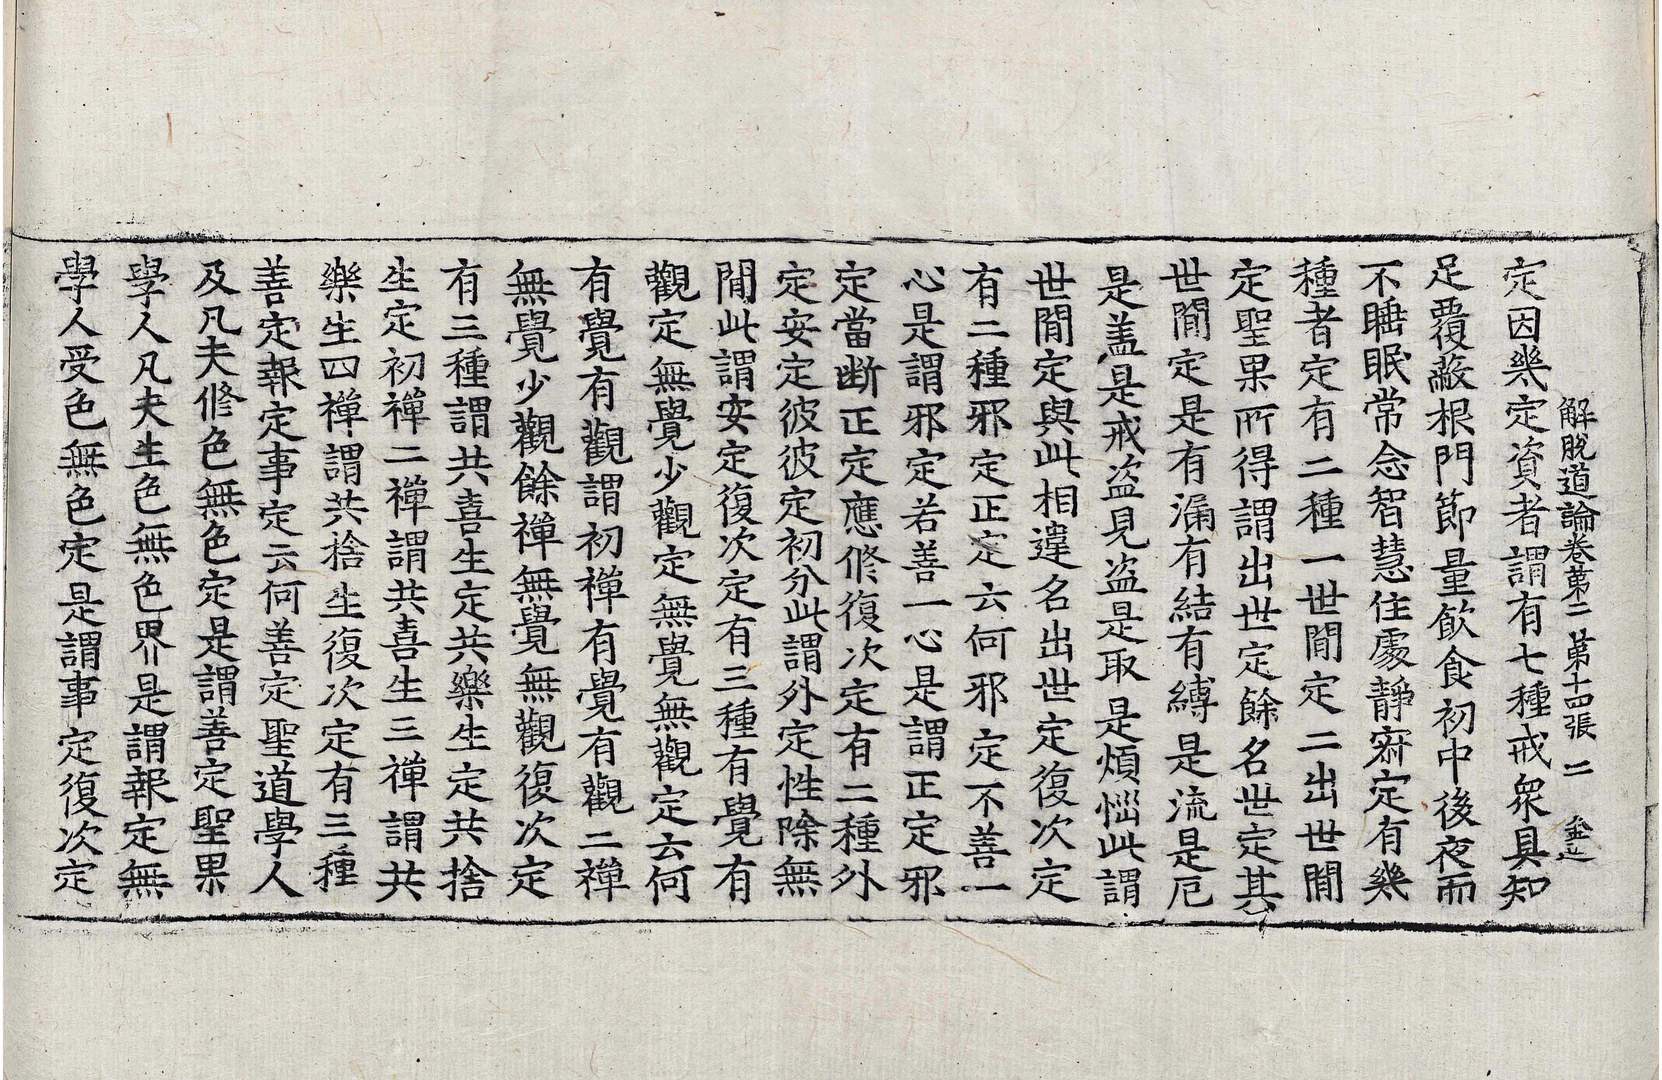 解脫道論卷第二 第十四張 二
定因幾定資者謂有七種戒衆具知
足覆蔽根門節量飮食初中後夜而
不睡眠常念智慧住處靜寂定有幾
種者定有二種一世間定二出世間
定聖果所得謂出世定餘名世定其
世間定是有漏有結有縛是流是厄
是盖是戒盜見盜是取是煩惱此謂
世間定與此相違名出世定復次定
有二種邪定正定云何邪定不善一
心是謂邪定若善一心是謂正定邪
定當斷正定應修復次定有二種外
定安定彼彼定初分此謂外定性除無
間此謂安定復次定有三種有覺有
觀定無覺少觀定無覺無觀定云何
有覺有觀謂初禪有覺有觀二禪
無覺少觀餘禪無覺無觀復次定
有三種謂共喜生定共樂生定共捨
生定初禪二禪謂共喜生三禪謂共
樂生四禪謂共捨生復次定有三種
善定報定事定云何善定聖道學人
及凡夫修色無色定是謂善定聖果
學人凡夫生色無色界是謂報定無
學人受色無色定是謂事定復次定